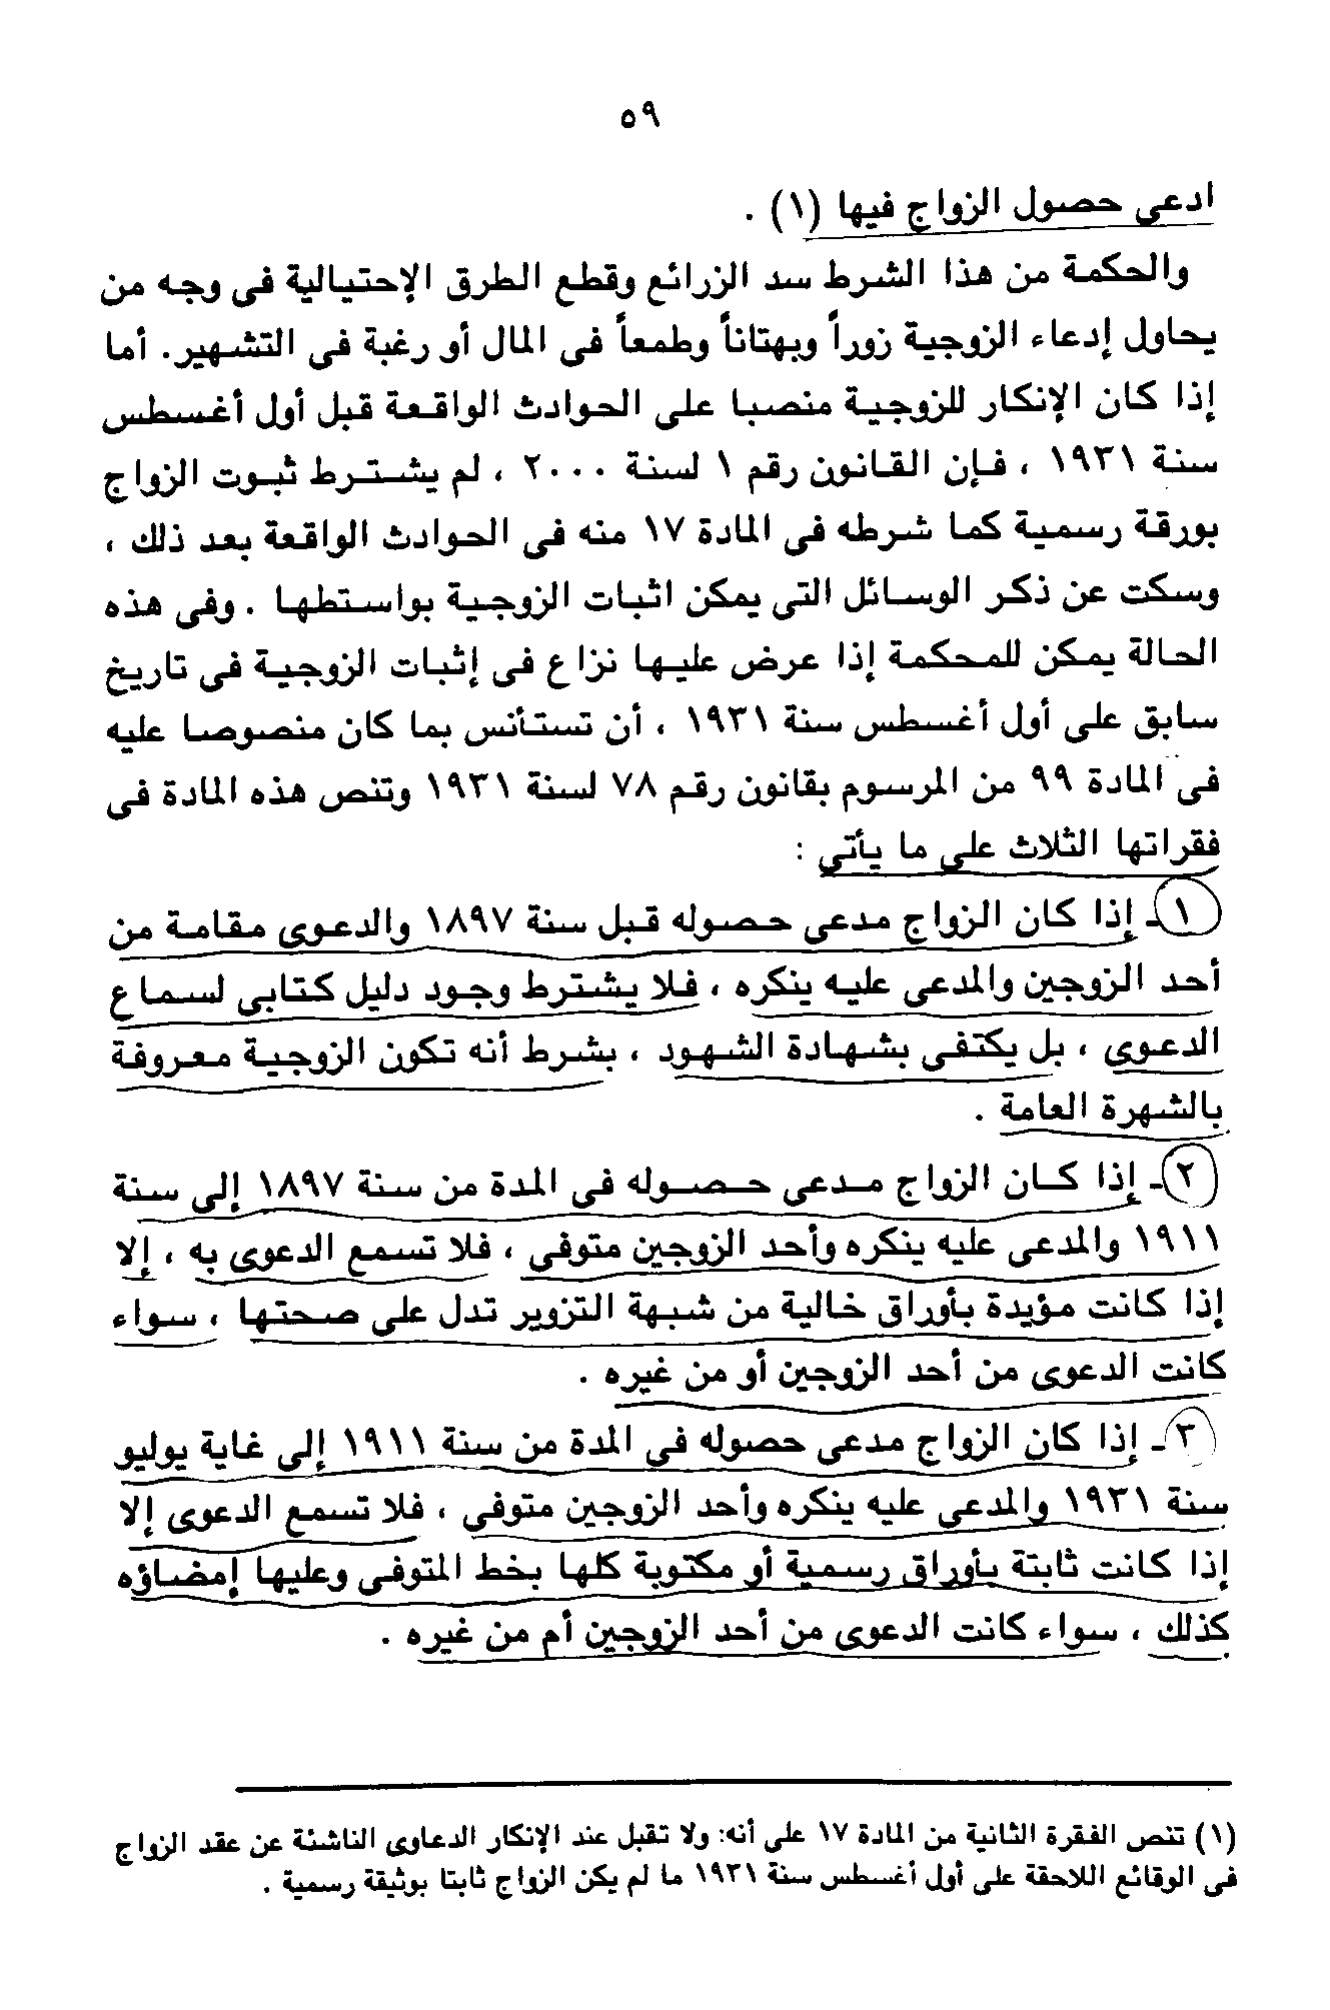 ٥٩
ادعى حصول الزواج فيها (١) .
والحكمة من هذا الشرط سد الزرائع وقطع الطرق الإحتيالية فى وجه من
يحاول إدعاء الزوجية زوراً وبهتاناً وطمعاً فى المال أو رغبة فى التشهير. أما
إذا كان الإنكار للزوجية منصبا على الحوادث الواقعة قبل أول أغسطس
سنة ١٩٣١ ، فإن القانون رقم ١ لسنة ٢٠٠٠ ، لم يشترط ثبوت الزواج
بورقة رسمية كما شرطه فى المادة ١٧ منه فى الحوادث الواقعة بعد ذلك ،
وسكت عن ذكر الوسائل التى يمكن اثبات الزوجية بواستطها . وفى هذه
الحالة يمكن للمحكمة إذا عرض عليها نزاع فى إثبات الزوجية فى تاريخ
سابق على أول أغسطس سنة ١٩٣١ ، أن تستأنس بما كان منصوصا عليه
فى المادة ٩٩ من المرسوم بقانون رقم ٧٨ لسنة ١٩٣١ وتنص هذه المادة فى
فقراتها الثلاث على ما يأتى :
١ـ إذا كان الزواج مدعى حصوله قبل سنة ١٨٩٧ والدعوى مقامة من
أحد الزوجين والمدعى عليه ينكره ، فلا يشترط وجود دليل كتابى لسماع
الدعوى ، بل يكتفى بشهادة الشهود ، بشرط أنه تكون الزوجية معروفة
بالشهرة العامة .
٢ـ إذا كان الزواج مدعى حصوله فى المدة من سنة ١٨٩٧ إلى سنة
١٩١١ والمدعى عليه ينكره وأحد الزوجين متوفى ، فلا تسمع الدعوى به ، إلا
إذا كانت مؤيدة بأوراق خالية من شبهة التزوير تدل على صحتها ، سواء
كانت الدعوى من أحد الزوجين أو من غيره .
٣ـ إذا كان الزواج مدعى حصوله فى المدة من سنة ١٩١١ إلى غاية يوليو
سنة ١٩٣١ والمدعى عليه ينكره وأحد الزوجين متوفى ، فلا تسمع الدعوى إلا
إذا كانت ثابتة بأوراق رسمية أو مكتوبة كلها بخط المتوفى وعليها إمضاؤه
كذلك ، سواء كانت الدعوى من أحد الزوجين أم من غيره .
(١) تنص الفقرة الثانية من المادة ١٧ على أنه: ولا تقبل عند الإنكار الدعاوى الناشئة عن عقد الزواج
فى الوقائع اللاحقة على أول أغسطس سنة ١٩٣١ ما لم يكن الزواج ثابتا بوثيقة رسمية .